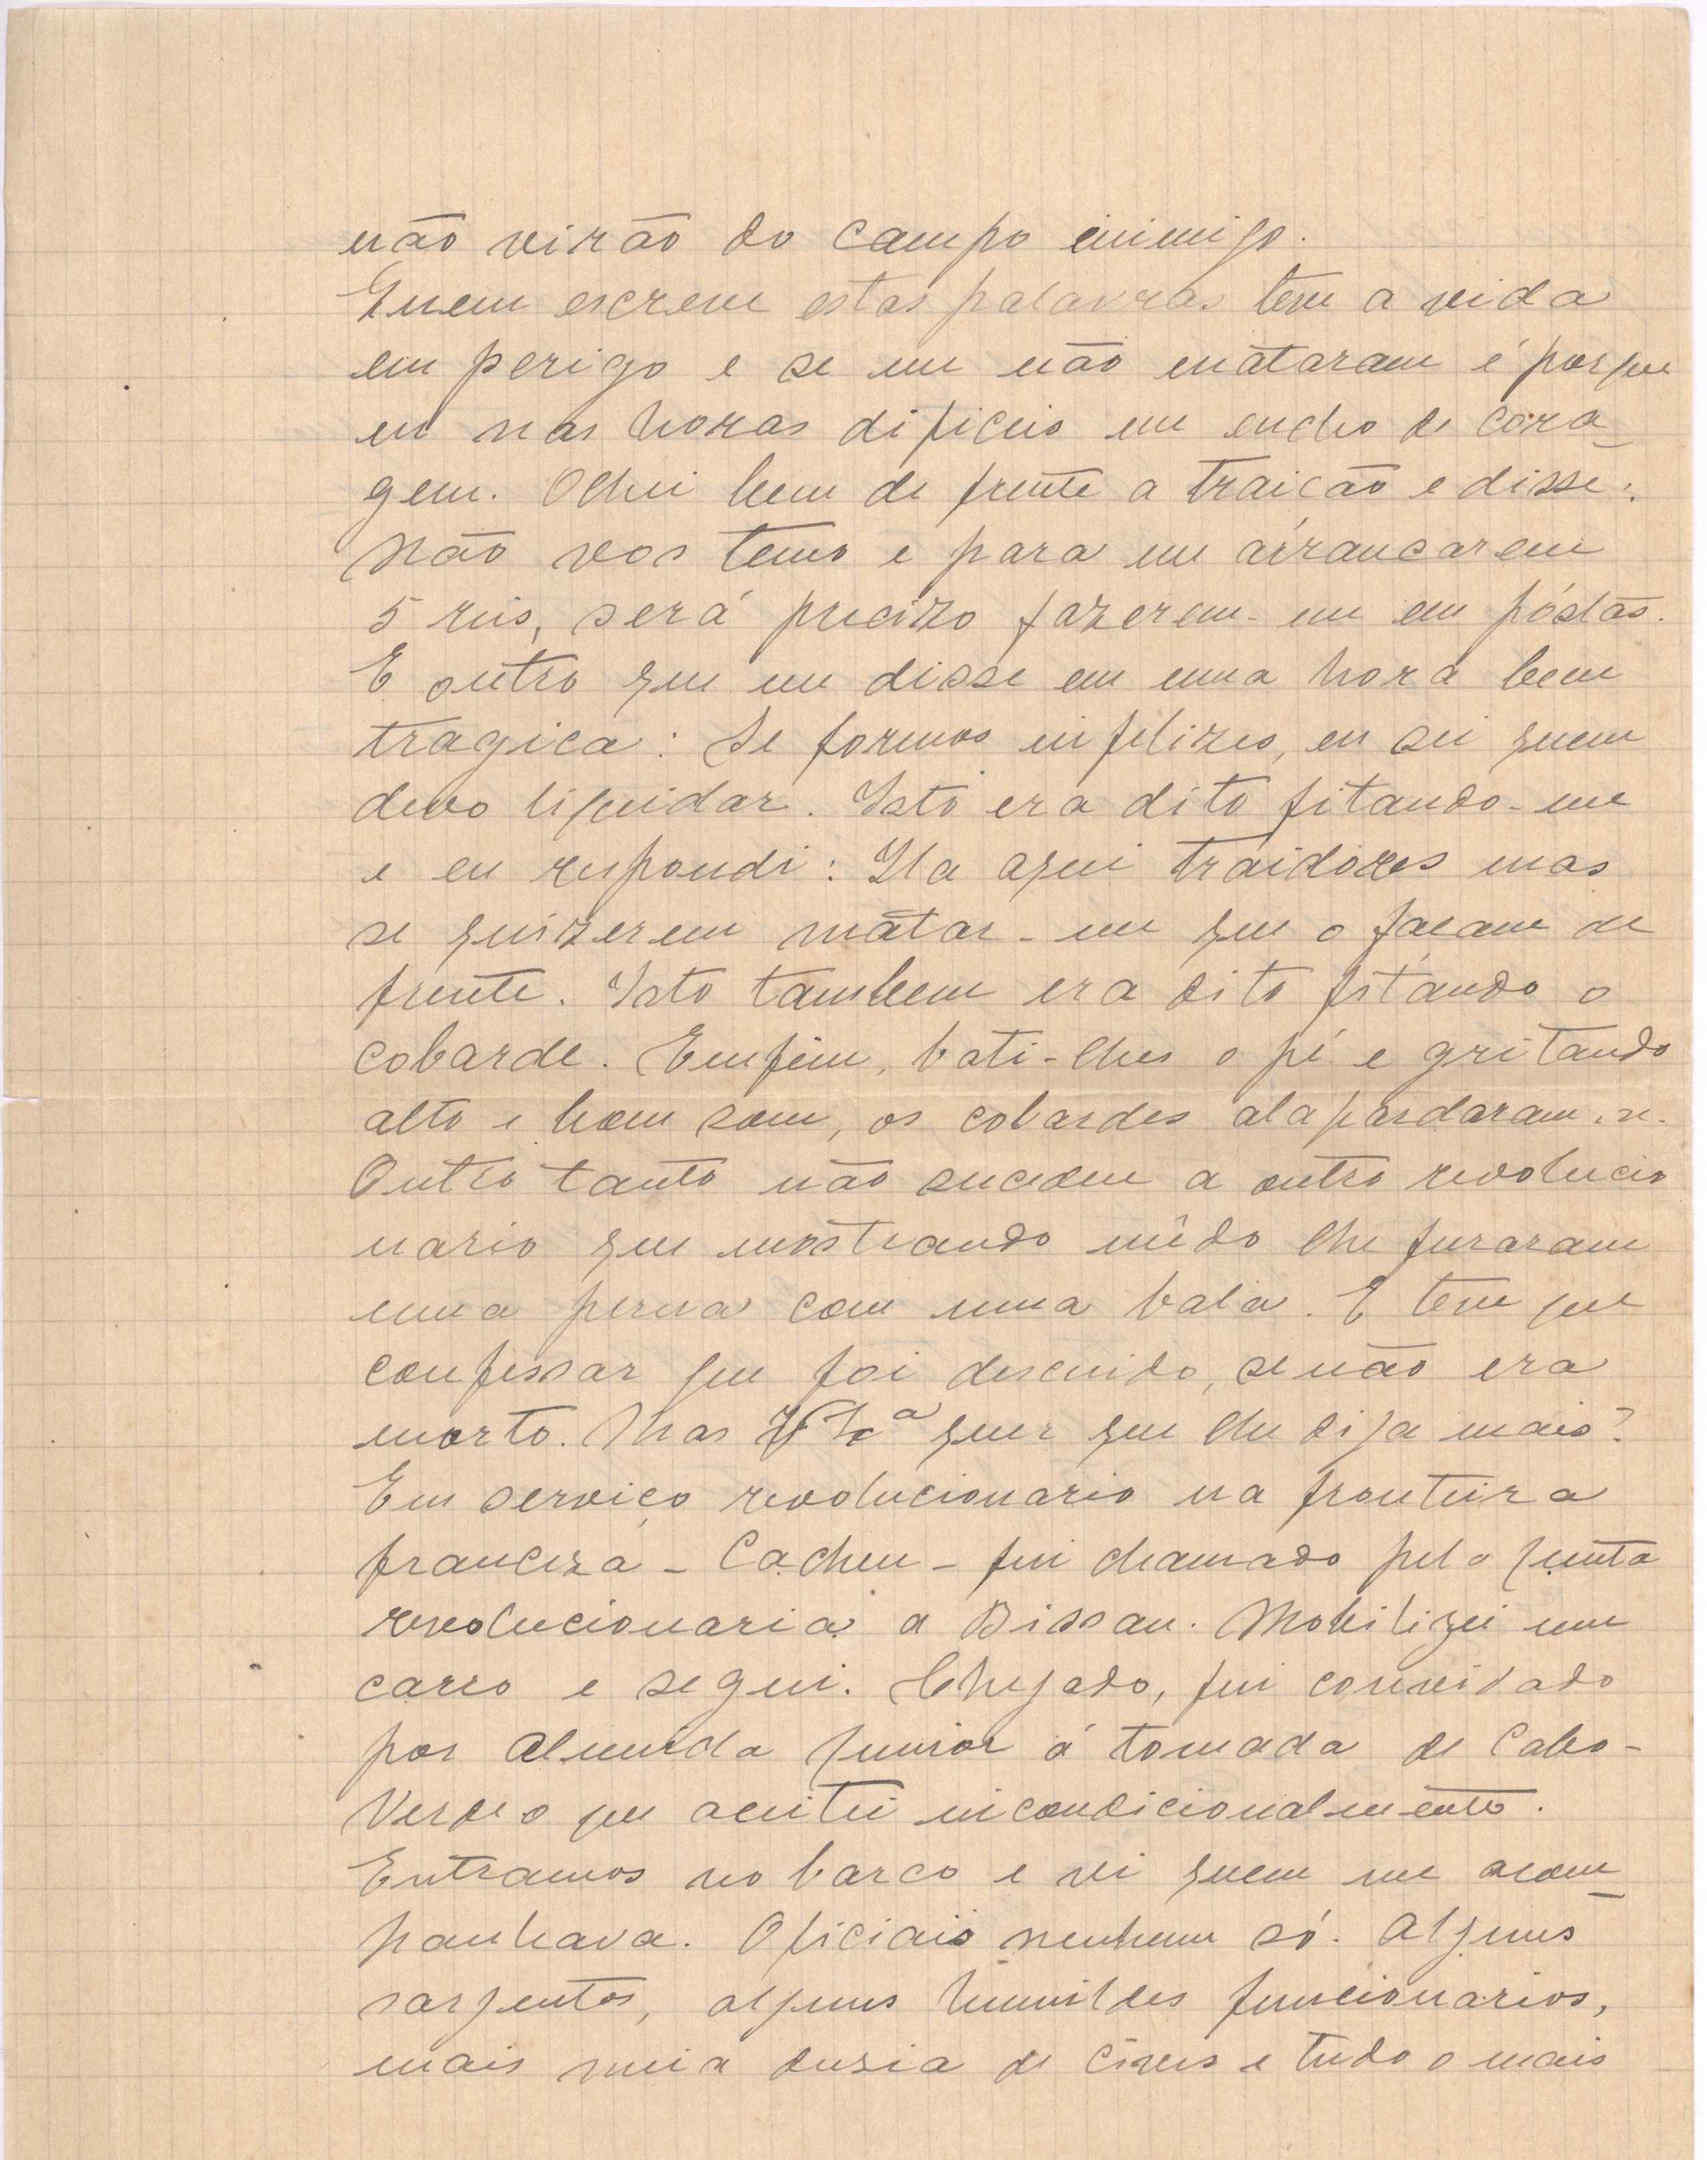 não virão do campo inimigo.
Quem escreve estas palavras teve a vida
em perigo e se me não mataram é porque
eu nas horas dificeis me encho de cora-
gem. Olhei bem de frente a traição e disse:
Não vos temo e para me arrancarem
5 reis, será precizo fazerem-me em póstas.
E outro que me disse em uma hora bem
tragica: Se formos infelizes, eu sei quem
devo liquidar. Isto era dito fitando-me
e eu respondi: Ha aqui traidores mas
se quizerem matar-me que o façam de
frente. Isto tambem era dito fitando o
cobarde. Emfim, bati-lhes o pé e gritando
alto e bom som, os cobardes alapardaram-se.
Outro tanto não sucedeu a outro revolucio
nario que mostrando mêdo lhe furaram
uma perna com uma bala. E teve que
confessar que foi descuido, senão era
morto. Mas V. Ex.ª quer que lhe diga mais?
Em serviço revolucionario na fronteira
franceza - Cacheu - fui chamado pela Junta
revolucionaria a Bissau. Mobilizei um
carro e segui. Chegado, fui convidado
por Almeida Junior á tomada de Cabo-
Verde o que aceitei incondicionalmente.
Entramos no barco e vi quem me acom-
panhava. Oficiais nenhum só. Alguns
sargentos, alguns humildes funcionarios,
mais meia dusia de civis e tudo o mais